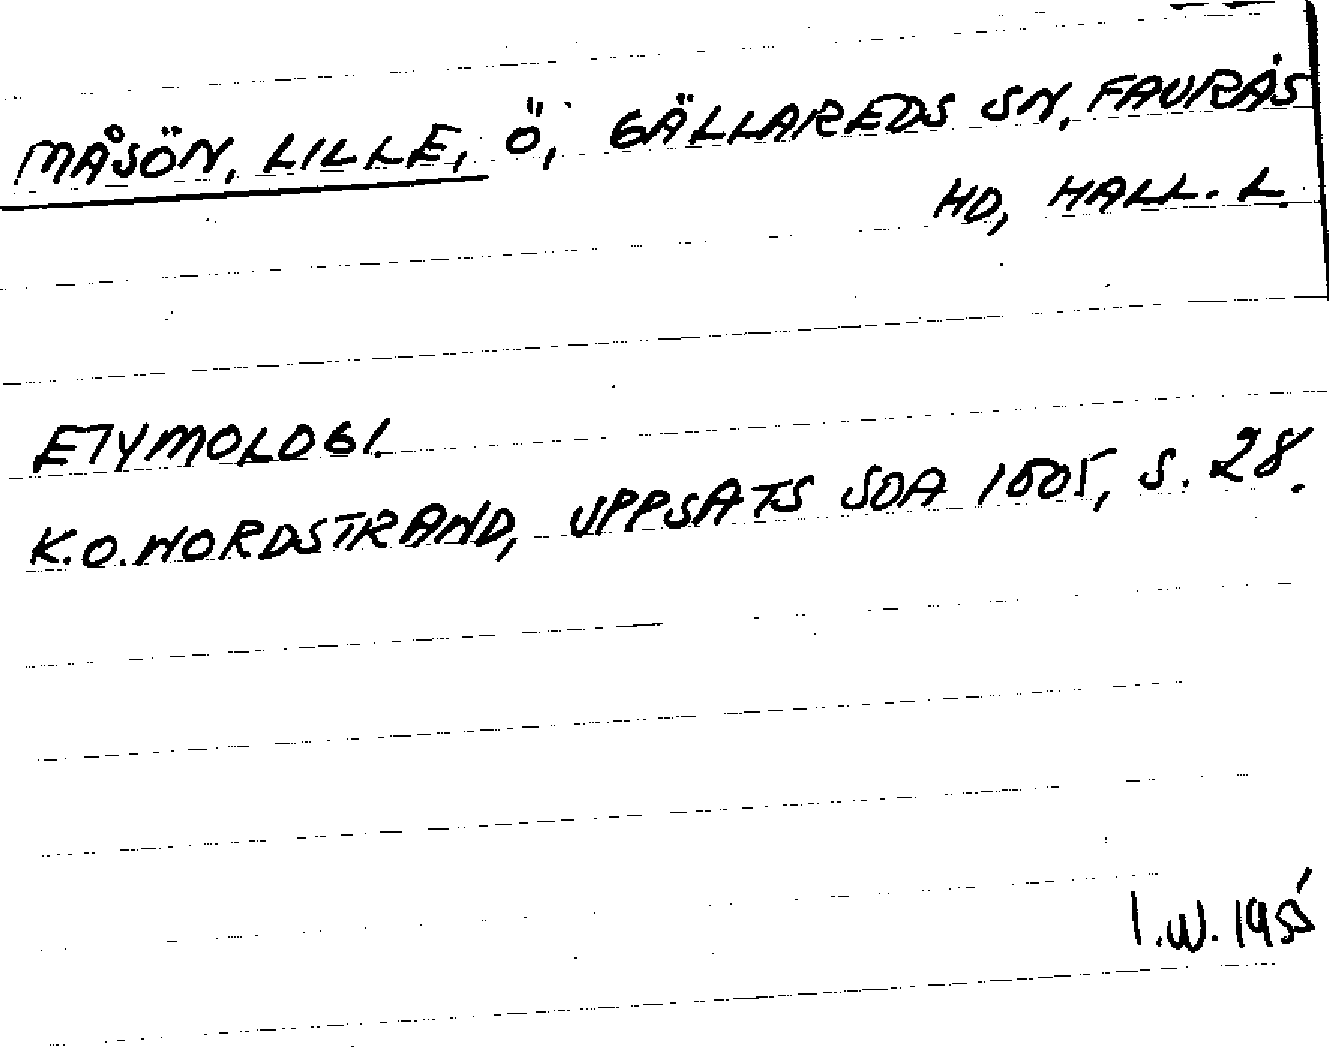 MÅSÖN, LILLE, Ö, GÄLLAREDS SN, FAURÅS
HD, HALL. L.
ETYMOLOGI.
K.O. NORDSTRAND, UPPSATS SOA 1005, S. 28.
I.W. 1955